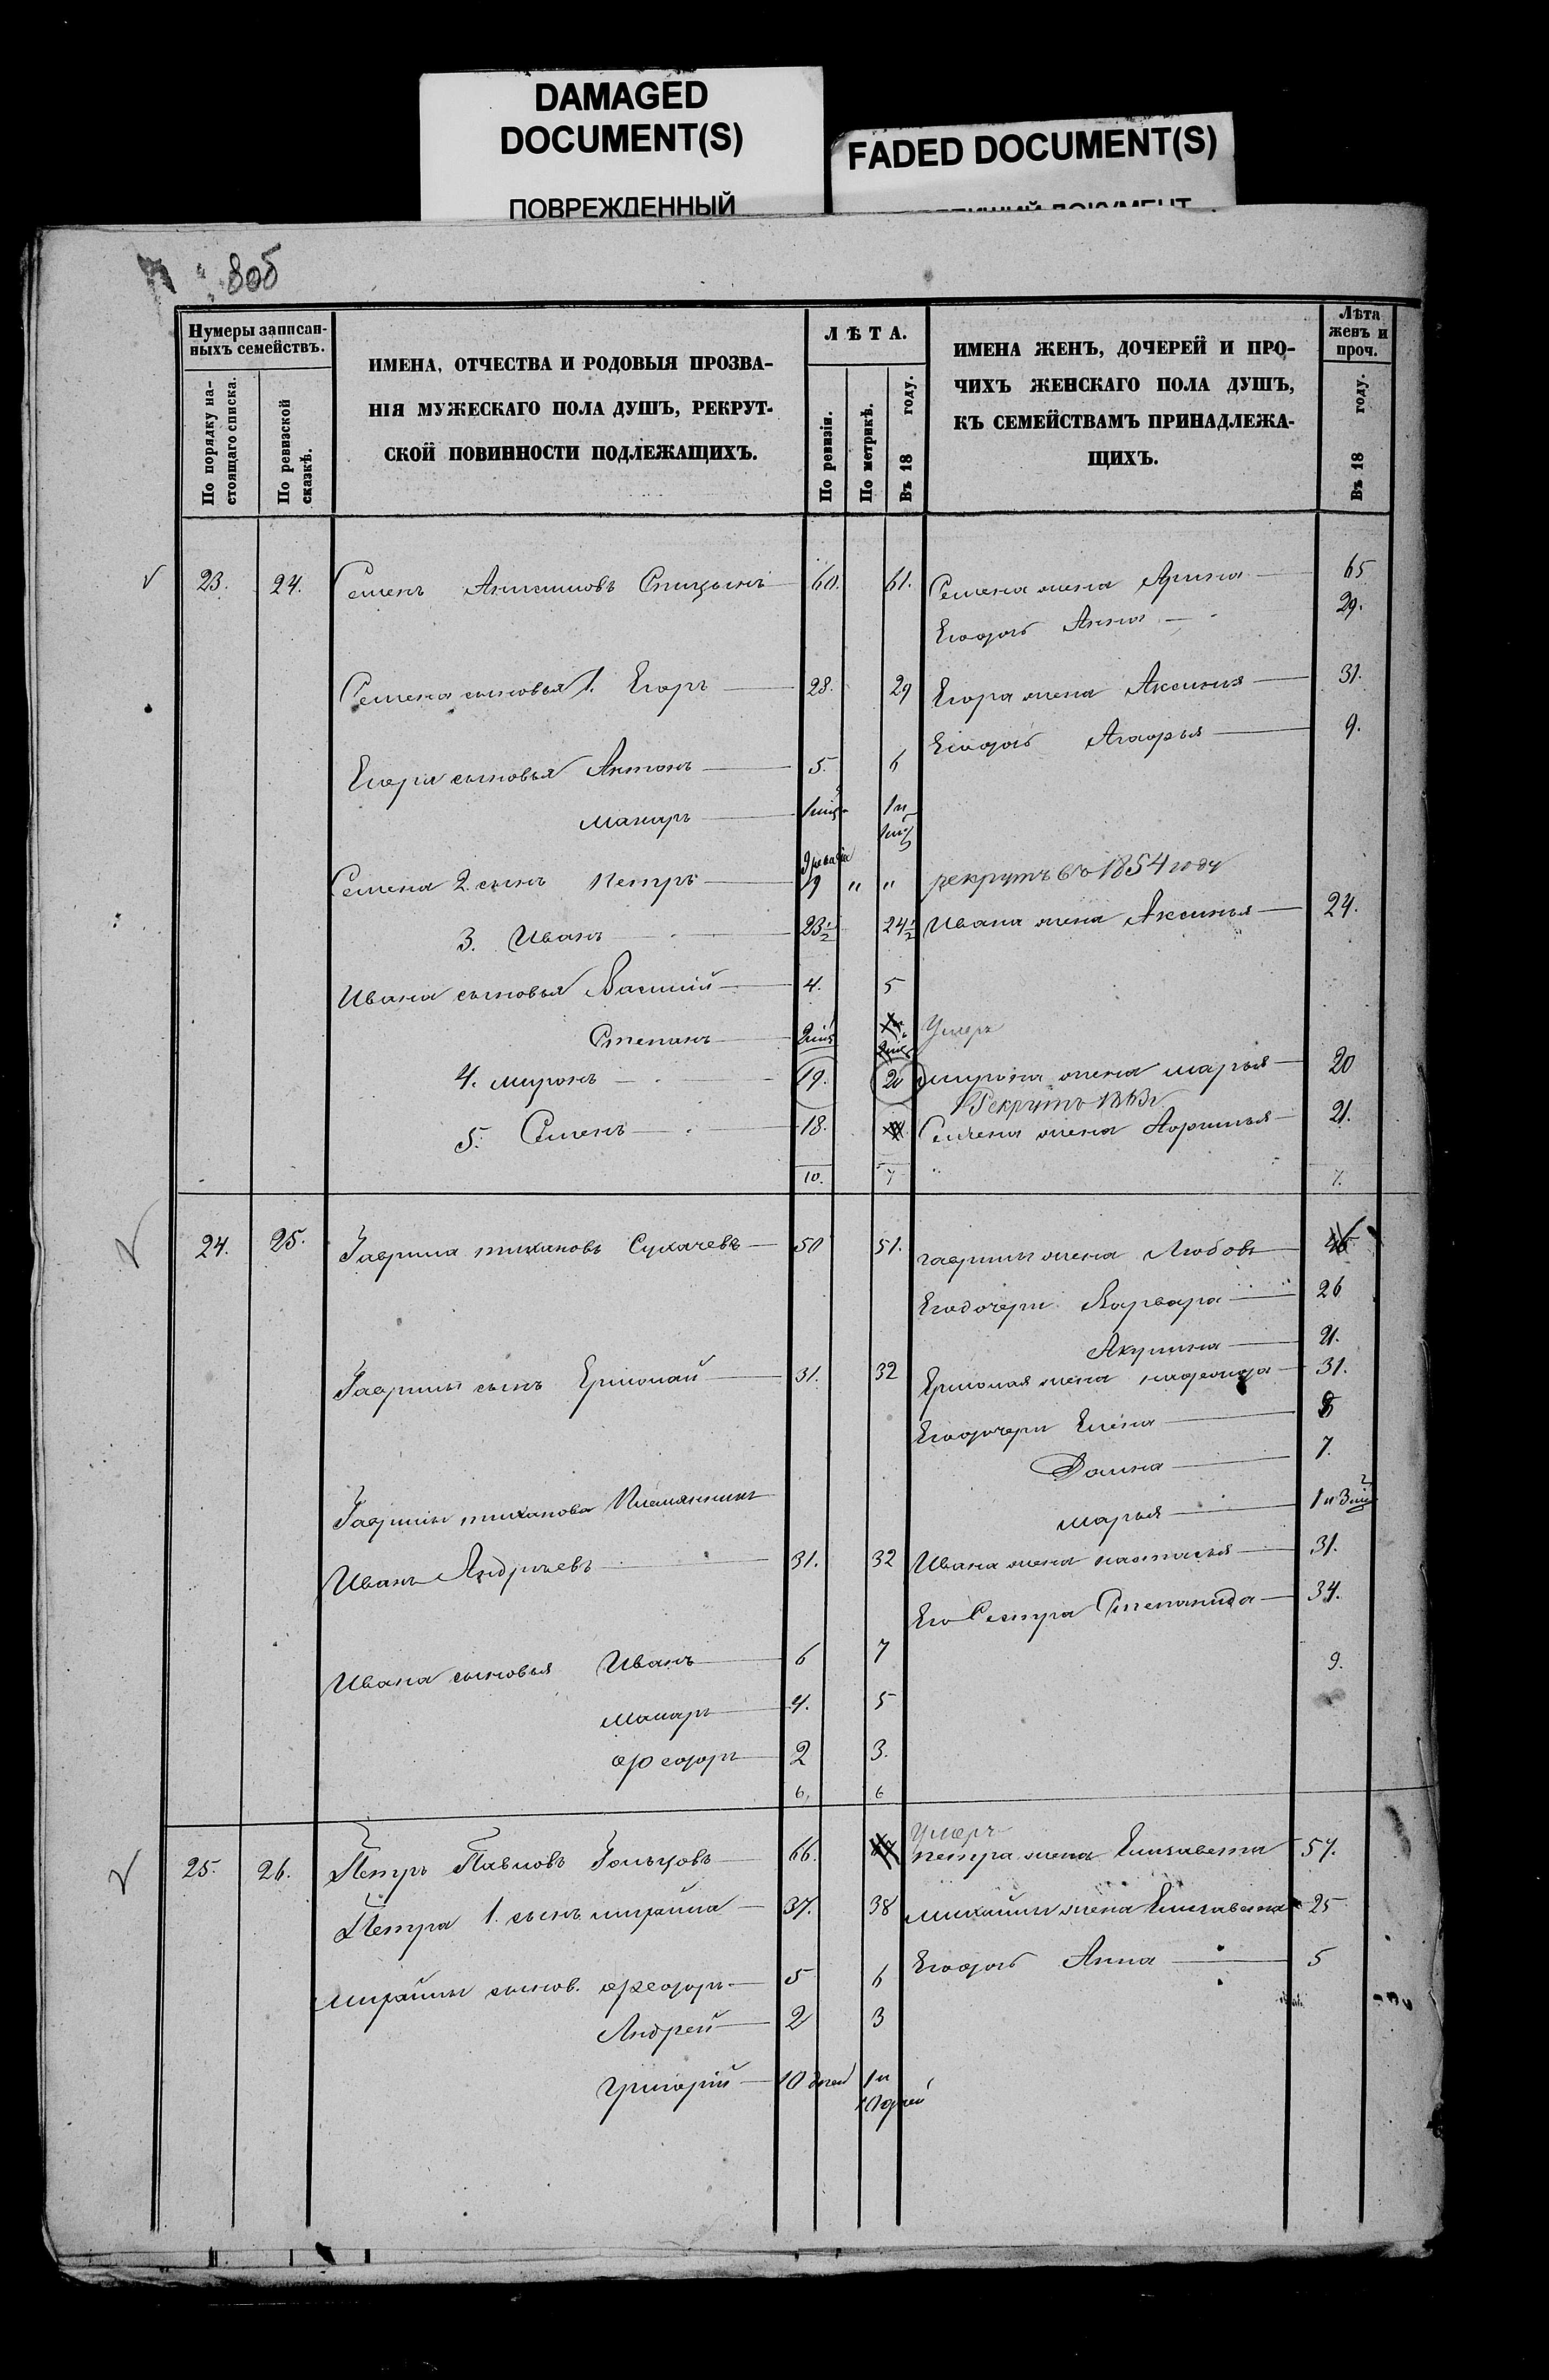 DAMAGED
DOCUMENT(S)
ПОВРЕЖДЕННЫЙ
FADED DOCUMENT(S)
805
Нумеры записан-
ныхъ семействъ.
По порядку на-
стоящаго списка.
По ревизской
сказкѣ.
ИМЕНА, ОТЧЕСТВА И РОДОВЫЯ ПРОЗВА-
НІЯ МУЖЕСКАГО ПОЛА ДУШЪ, РЕКРУТ-
СКОЙ ПОВИННОСТИ ПОДЛЕЖАЩИХЪ.
ЛѢТА.
По ревизіи.
По метрикѣ.
Въ 18 году.
ИМЕНА ЖЕНЪ, ДОЧЕРЕЙ И ПРО-
ЧИХЪ ЖЕНСКАГО ПОЛА ДУШЪ,
КЪ СЕМЕЙСТВАМЪ ПРИНАДЛЕЖА-
ЩИХЪ.
Лѣта
женъ и
проч.
Въ 18 году.
23. 24. Семенъ Анисимовъ Спицынъ 60. 61. Семена жена Арина 65
Егодочь Анна 29.
Семена сыновья 1. Егоръ 28. 29 Егора жена Аксинья 31.
Егодочь Агафья 9.
Егора сыновья Антонъ 5. 6
Макаръ 1 мѣс. 1 и
1 мѣс
Семена 2 сынъ Петръ 19 " " рекрутъ въ 1854 году
3. Иванъ 23½ 24½ Ивана жена Аксинья 24.
Ивана сыновья Василій 4. 5
Степанъ 2 мѣс Умеръ
4. Миронъ 19. 20 Мирона жена Марья 20
Рекрутъ 1863 г
5. Семенъ 18. Семена жена 21.
10. 7 " 7.
24. 25. Гаврила Тихановъ Сухачевъ 50 51. Гаврилы жена Любовь
Егодочери Варвара 26
Акулина 21.
Гаврилы сынъ Ермолай 31. 32 Ермолая жена 31.
Егодочери Елена 8
Домна 7.
Марья 1 и 3 мѣс
Гаврилы Тиханова Племянникъ
Иванъ Андреевъ 31. 32 Ивана жена Настасья 31.
Его Сестра Степанида 34.
Ивана сыновья Иванъ 6 7
9.
Макаръ 4. 5
Федоръ 2 3.
6. 6
25. 26. Петръ Павловъ Гольцовъ 66. Умеръ
Петра жена Елизавета 57.
Петра 1. сынъ Михайла 37. 38 Михайлы жена Елизавета 25
Михайлы сынов. Федоръ 5 6 Егодочь Анна 5
Андрей 2 3
Григорій 10 дней 1 и
10 дней